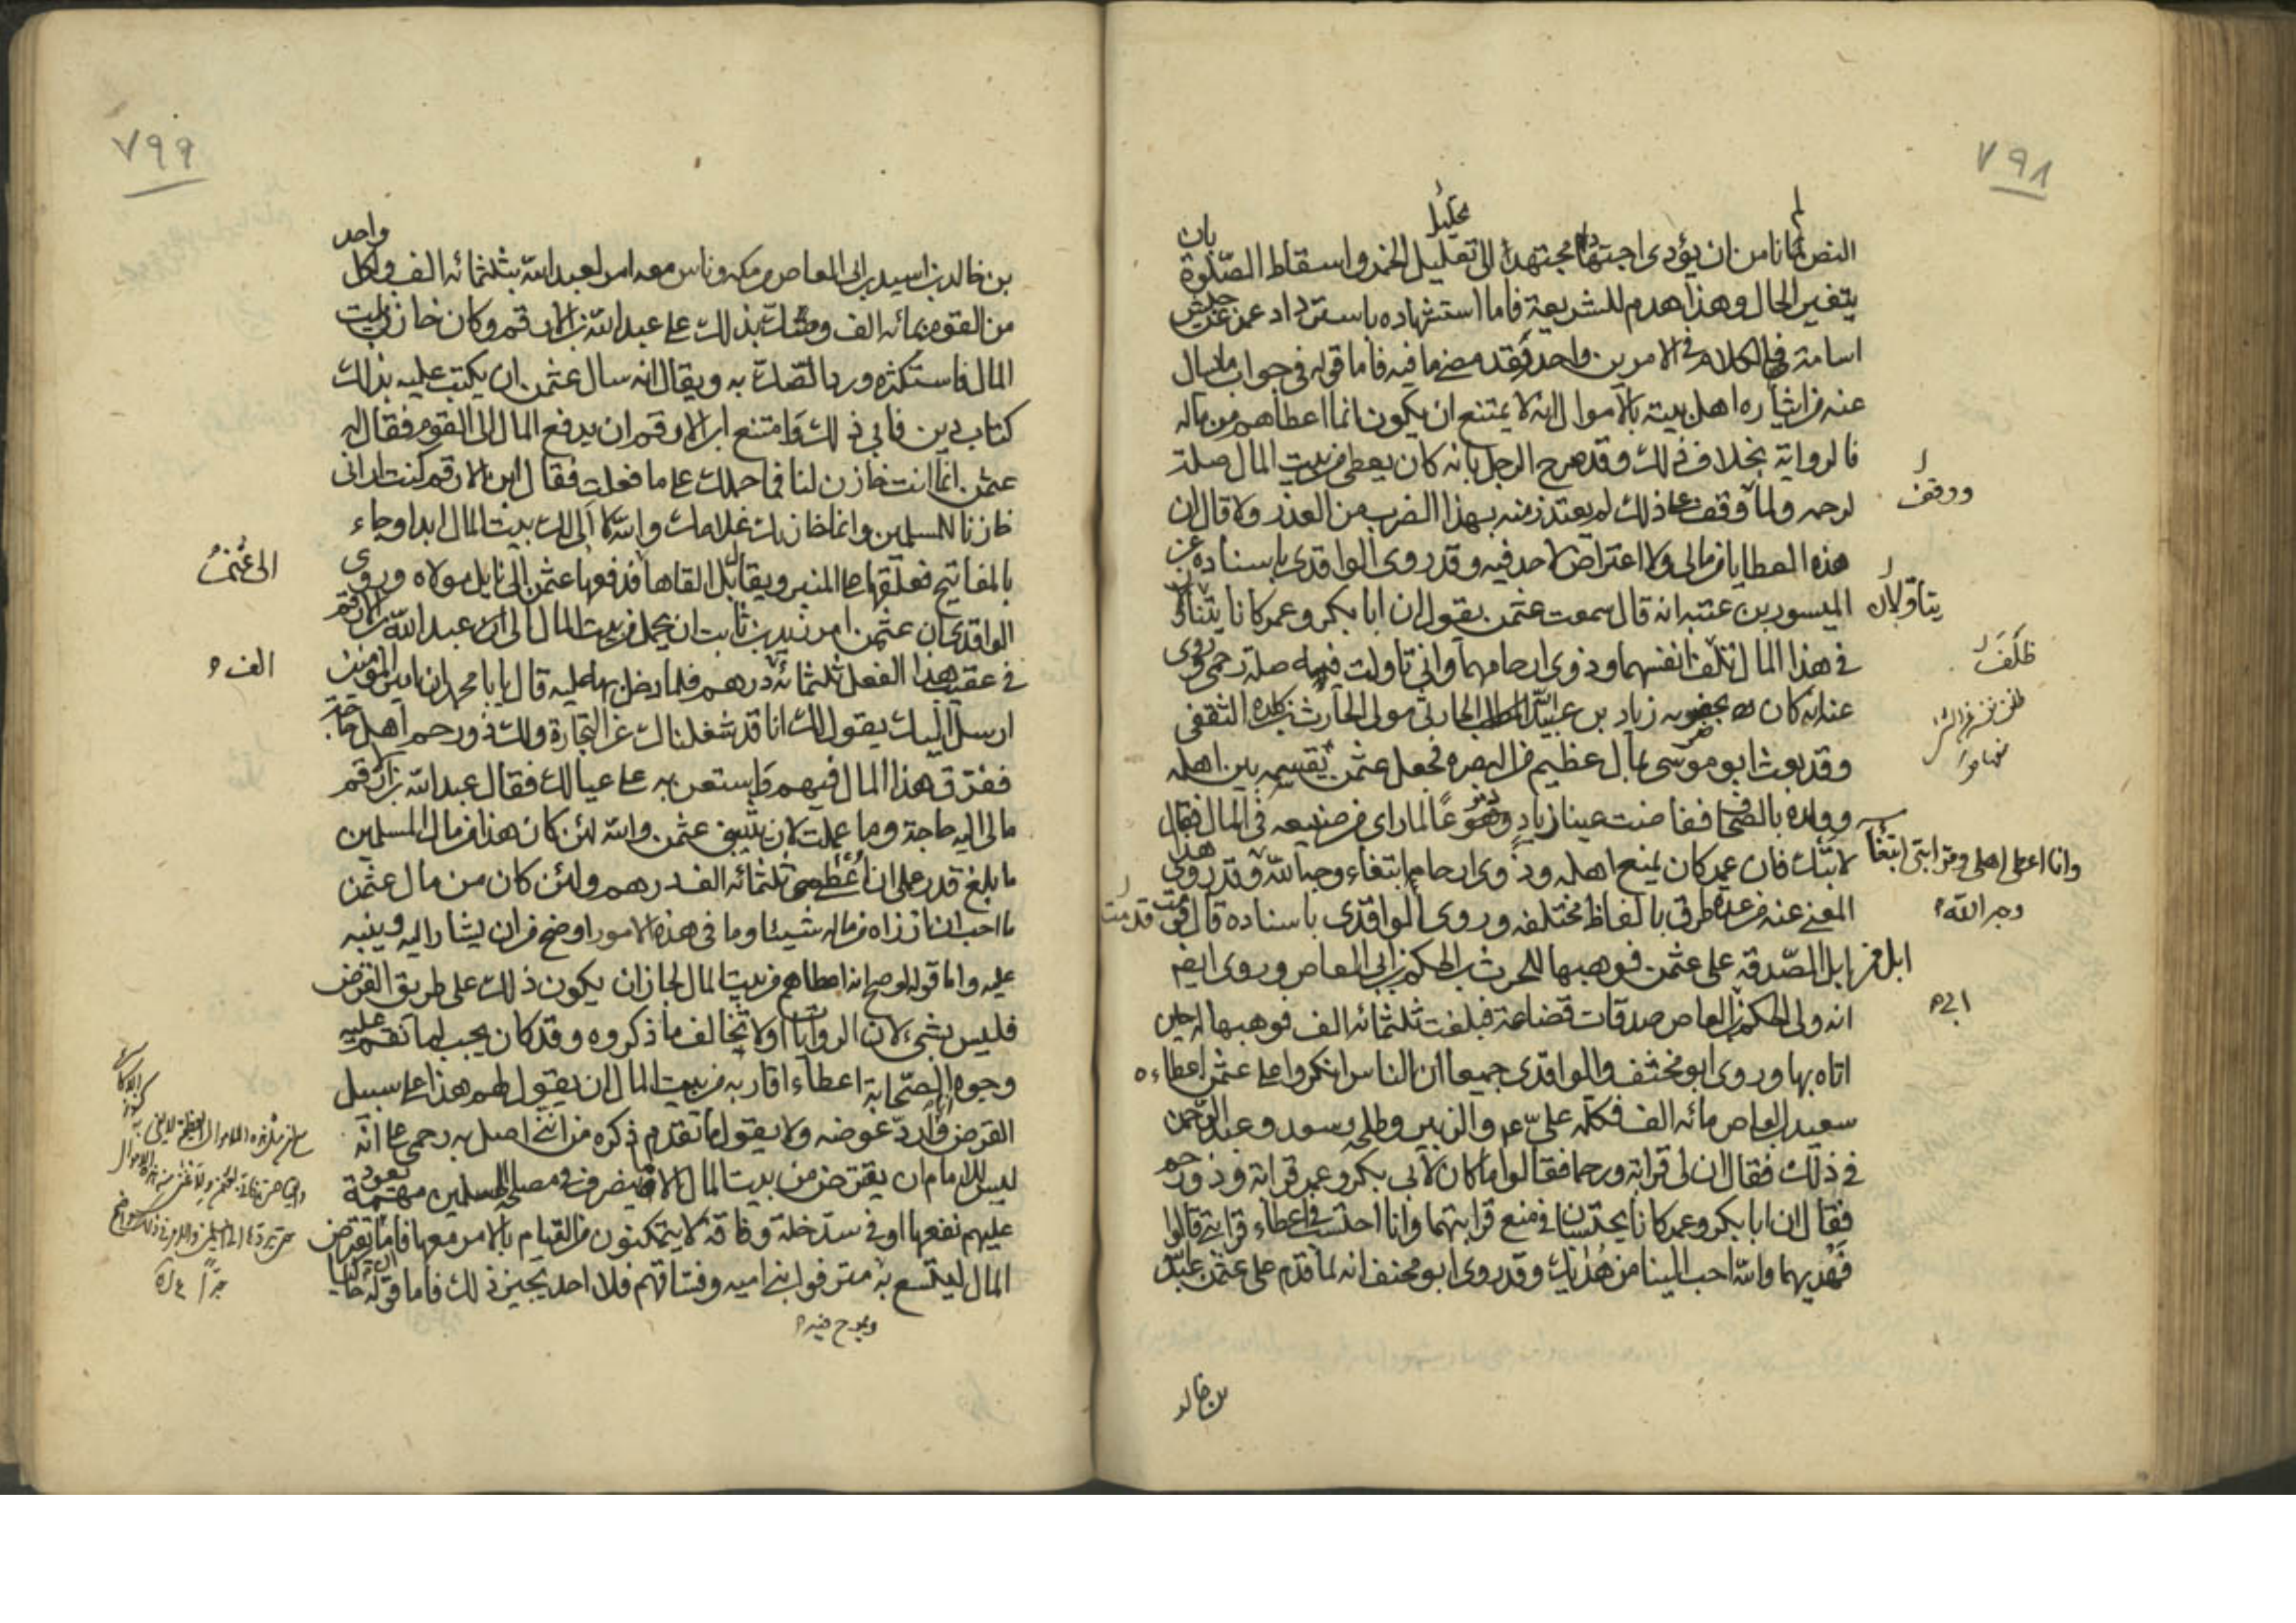 ٧٩٨
لم
تحليل
بان
النص لما نامن ان يؤدى اجتهاد مجتهد الى تقليل الخمر واسقاط الصّلوة
بتغير الحال وهذا هدم للشريعة فاما استشهاده باسترداد عمر جيش
اسامة فى الكلام فى الامرين واحد وقد مضى ما فيه فاما قوله فى جواب ما سال
عنه من ايثاره اهل بيته بالاموال انه لا يمتنع ان يكون انما اعطاهم من ماله
فالرواية بخلاف ذلك وقد صرح الرجل بانه كان يعطى من بيت المال صلة
لرحمه ولما وقف على ذلك لم يعتذر منه بهذا الضرب من العذر ولا قال ان
ووقف
هذه العطايا من مالى ولا اعتراض لاحد فيه وقد روى الواقدى باسناده عن
الميسور بن عتبه انه قال سمعت عثمن يقول ان ابا بكر وعمر كانا يتناولان
يتاوّلان
فى هذا المال ظلف انفسهما وذوى ارحامهما وانى تاولت فيه صلة رحمى وروى
ظلف
عنه انه كان بحضرته زياد بن عبيد الحارثى مولى الحارث بن كلده الثقفى
وقد بعث ابو موسى بمال عظيم من البصره فجعل عثمن يقسمه بين اهله
وولده بالصحاف ففاضت عينا زياد دموعا لما راى من صنيعه فى المال فقال
لا تبك فان عمر كان يمنع اهله وذوى ارحامه ابتغاء وجه الله وقد روى هذا
وانا اعطى اهلى وقرابتى ابتغاء
وجه الله
المعنى عنه من عدة طرق بالفاظ مختلفه وروى الواقدى باسناده قال قدمت
ابل من ابل الصّدقة على عثمن فوهبها للحرث بن الحكم بن ابى العاص وروى ايضا
انه ولى الحكم بن العاص صدقات قضاعة فبلغت ثلثمائه الف فوهبها له حين
ابى
اتاه بها وروى ابو مخنف والواقدى جميعا ان الناس انكروا على عثمن اعطاءه
سعيد بن العاص مائه الف فكلمه علىّ ع والزبير وطلحه وسعد وعبد الرحمن
فى ذلك فقال ان لى قرابة ورحما فقالوا اما كان لابى بكر وعمر قرابة وذو رحم
فقال ان ابا بكر وعمر كانا يحتسبان فى منع قرابتهما وانا احتسب فى اعطاء قرابتى قالوا
فهديهما والله احب الينا من هديك وقد روى ابو مخنف انه لما قدم على عثمن عبد الله
بن خالد
٧٩٩
بن خالد بن اسيد بن ابى العاص من مكه وناس معه امر لعبد الله بثلثمائه الف ولكل واحد
من القوم بمائه الف وصك بذلك على عبد الله بن الارقم وكان خازن بيت
المال فاستكثره ورد الصّك به ويقال انه سال عثمن ان يكتب عليه بذلك
كتاب دين فابى ذلك وامتنع ابن الارقم ان يدفع المال الى القوم فقال له
عثمن انما انت خازن لنا فما حملك على ما فعلت فقال ابن الارقم كنت ارانى
خازنا للمسلمين وانما خازنك غلامك والله لا الى لك بيت المال ابدا وجاء
بالمفاتيح فعلّقها على المنبر ويقال بل القاها فدفعها عثمن الى نايل مولاه وروى
الى عثمن
الواقدى ان عثمن امر زيد بن ثابت ان يحمل من بيت المال الى عبد الله بن الارقم
فى عقيب هذا الفعل ثلثمائة درهم فلما دخل بها عليه قال يا با محمد ان امير المؤمنين
الف
ارسل اليك يقول لك انا قد شغلناك عن التجارة ولك ذو رحم اهل حاجة
ففرّق هذا المال فيهم واستعن به على عيالك فقال عبد الله بن الارقم
مالى اليه حاجة وما عملت لان يثيبنى عثمن والله لئن كان هذا من مال المسلمين
ما بلغ قدر عملى ان اعطى ثلثمائه الف درهم ولئن كان من مال عثمن
ما احب ان ازراه من ماله شيئا وما فى هذه الامور اوضح من ان يشار اليه وينبه
عليه واما قوله لو صح انه اعطاهم من بيت المال لجاز ان يكون ذلك على طريق القرض
فليس بشىء لان الروايات اولا تخالف ما ذكروه وقد كان يجب لما نقم عليه
وجوه الصّحابة اعطاء اقاربه من بيت المال ان يقول لهم هذا على سبيل
القرض وارد عوضه ولا يقول ما تقدم ذكره من اننى اصل به رحمى على انه
ليس للامام ان يقترض من بيت المال الا ما ينصرف فى مصلحة للمسلمين مهمة يعود
عليهم نفعها او فى سد خلة وفاقة لا يتمكنون من القيام بالامر معها فاما ان يقترض
المال ليتسع به مترفوا بنى اميه وفساقهم فلا احد يجيز ذلك فاما قوله حاكيا
ويمرح فيه